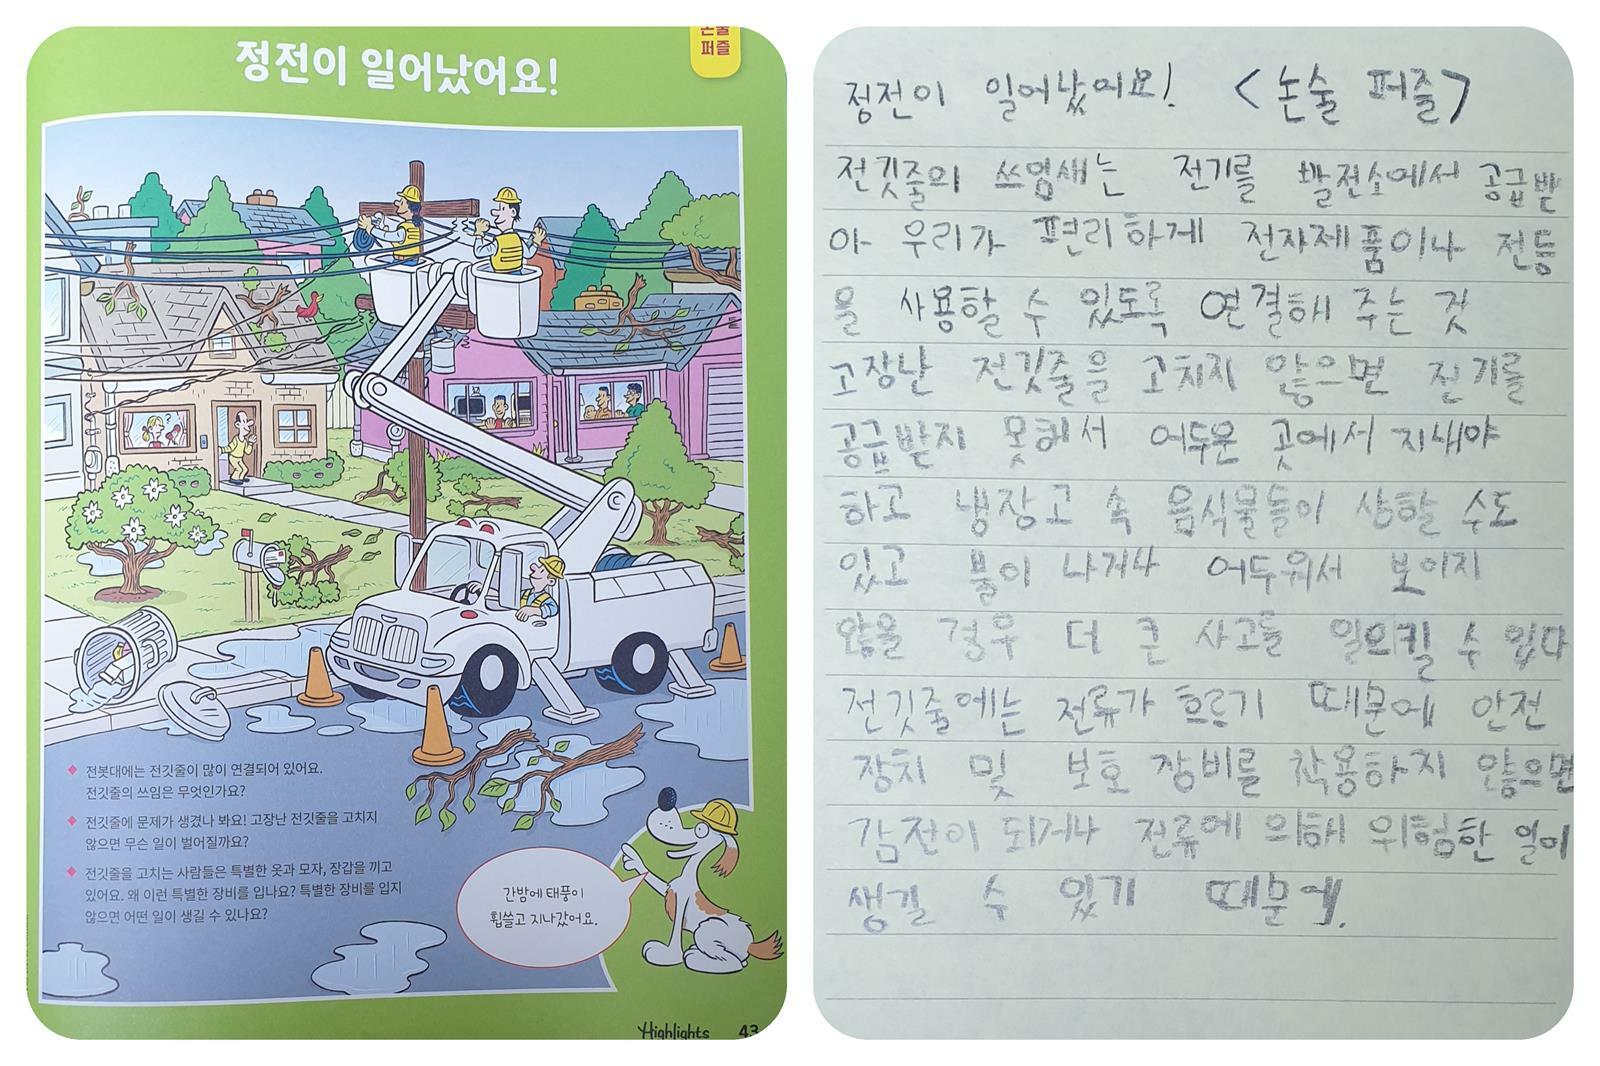 논술
퍼즐
정전이 일어났어요!
◆ 전봇대에는 전깃줄이 많이 연결되어 있어요.
전깃줄의 쓰임은 무엇인가요?
◆ 전깃줄에 문제가 생겼나 봐요! 고장난 전깃줄을 고치지
않으면 무슨 일이 벌어질까요?
◆ 전깃줄을 고치는 사람들은 특별한 옷과 모자, 장갑을 끼고
있어요. 왜 이런 특별한 장비를 입나요? 특별한 장비를 입지
않으면 어떤 일이 생길 수 있나요?
간밤에 태풍이
휩쓸고 지나갔어요.
Highlights 43
정전이 일어났어요! <논술 퍼즐>
전깃줄의 쓰임새는 전기를 발전소에서 공급받
아 우리가 편리하게 전자제품이나 전등
을 사용할 수 있도록 연결해 주는 것
고장난 전깃줄을 고치지 않으면 전기를
공급받지 못해서 어두운 곳에서 지내야
하고 냉장고 속 음식물들이 상할 수도
있고 불이 나거나 어두워서 보이지
않을 경우 더 큰 사고를 일으킬 수 있다
전깃줄에는 전류가 흐르기 때문에 안전
장치 및 보호 장비를 착용하지 않으면
감전이 되거나 전류에 의해 위험한 일이
생길 수 있기 때문에.